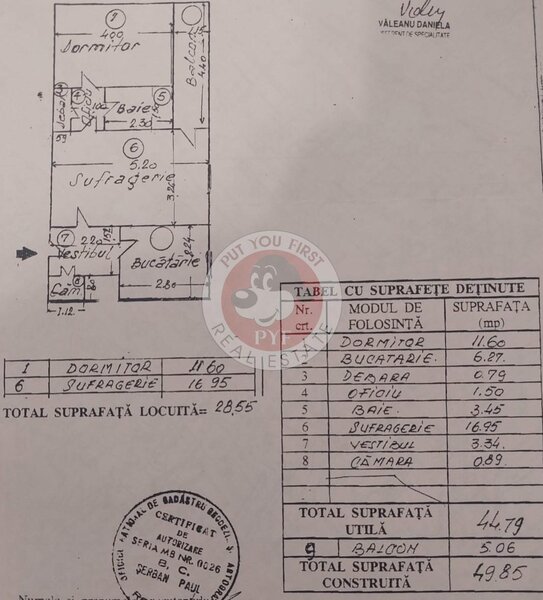 VĂLEANU DANIELA
1
Dormitor
4.00
Balcon
4.40
4
Oficiu
5
Baie
2.30
Debara
59
6
5.20
Sufragerie
3.26
7
2.20
Vestibul
2.24
Bucătărie
2.80
8
Căm
1.12
80
PUT YOU FIRST
PYF
REAL ESTATE
1 DORMITOR 11.60
6 SUFRAGERIE 16.95
TOTAL SUPRAFAȚĂ LOCUITĂ= 28,55
TABEL CU SUPRAFEȚE DEȚINUTE
Nr. crt. MODUL DE FOLOSINȚĂ SUPRAFAȚA (mp)
DORMITOR 11.60
BUCATARIE. 6.27.
3 DEBARA 0.79
4 OFICIU 1.50
5 BAIE. 3.45
6 SUFRAGERIE 16.95
7 VESTIBUL 3.34.
8 CĂMARA 0.89.
TOTAL SUPRAFAȚĂ UTILĂ 44.79
9 BALCON 5.06
TOTAL SUPRAFAȚĂ CONSTRUITĂ 49.85
CERTIFICAT
DE
AUTORIZARE
SERIA MB NR. 0026
B. C.
ȘERBAN PAUL